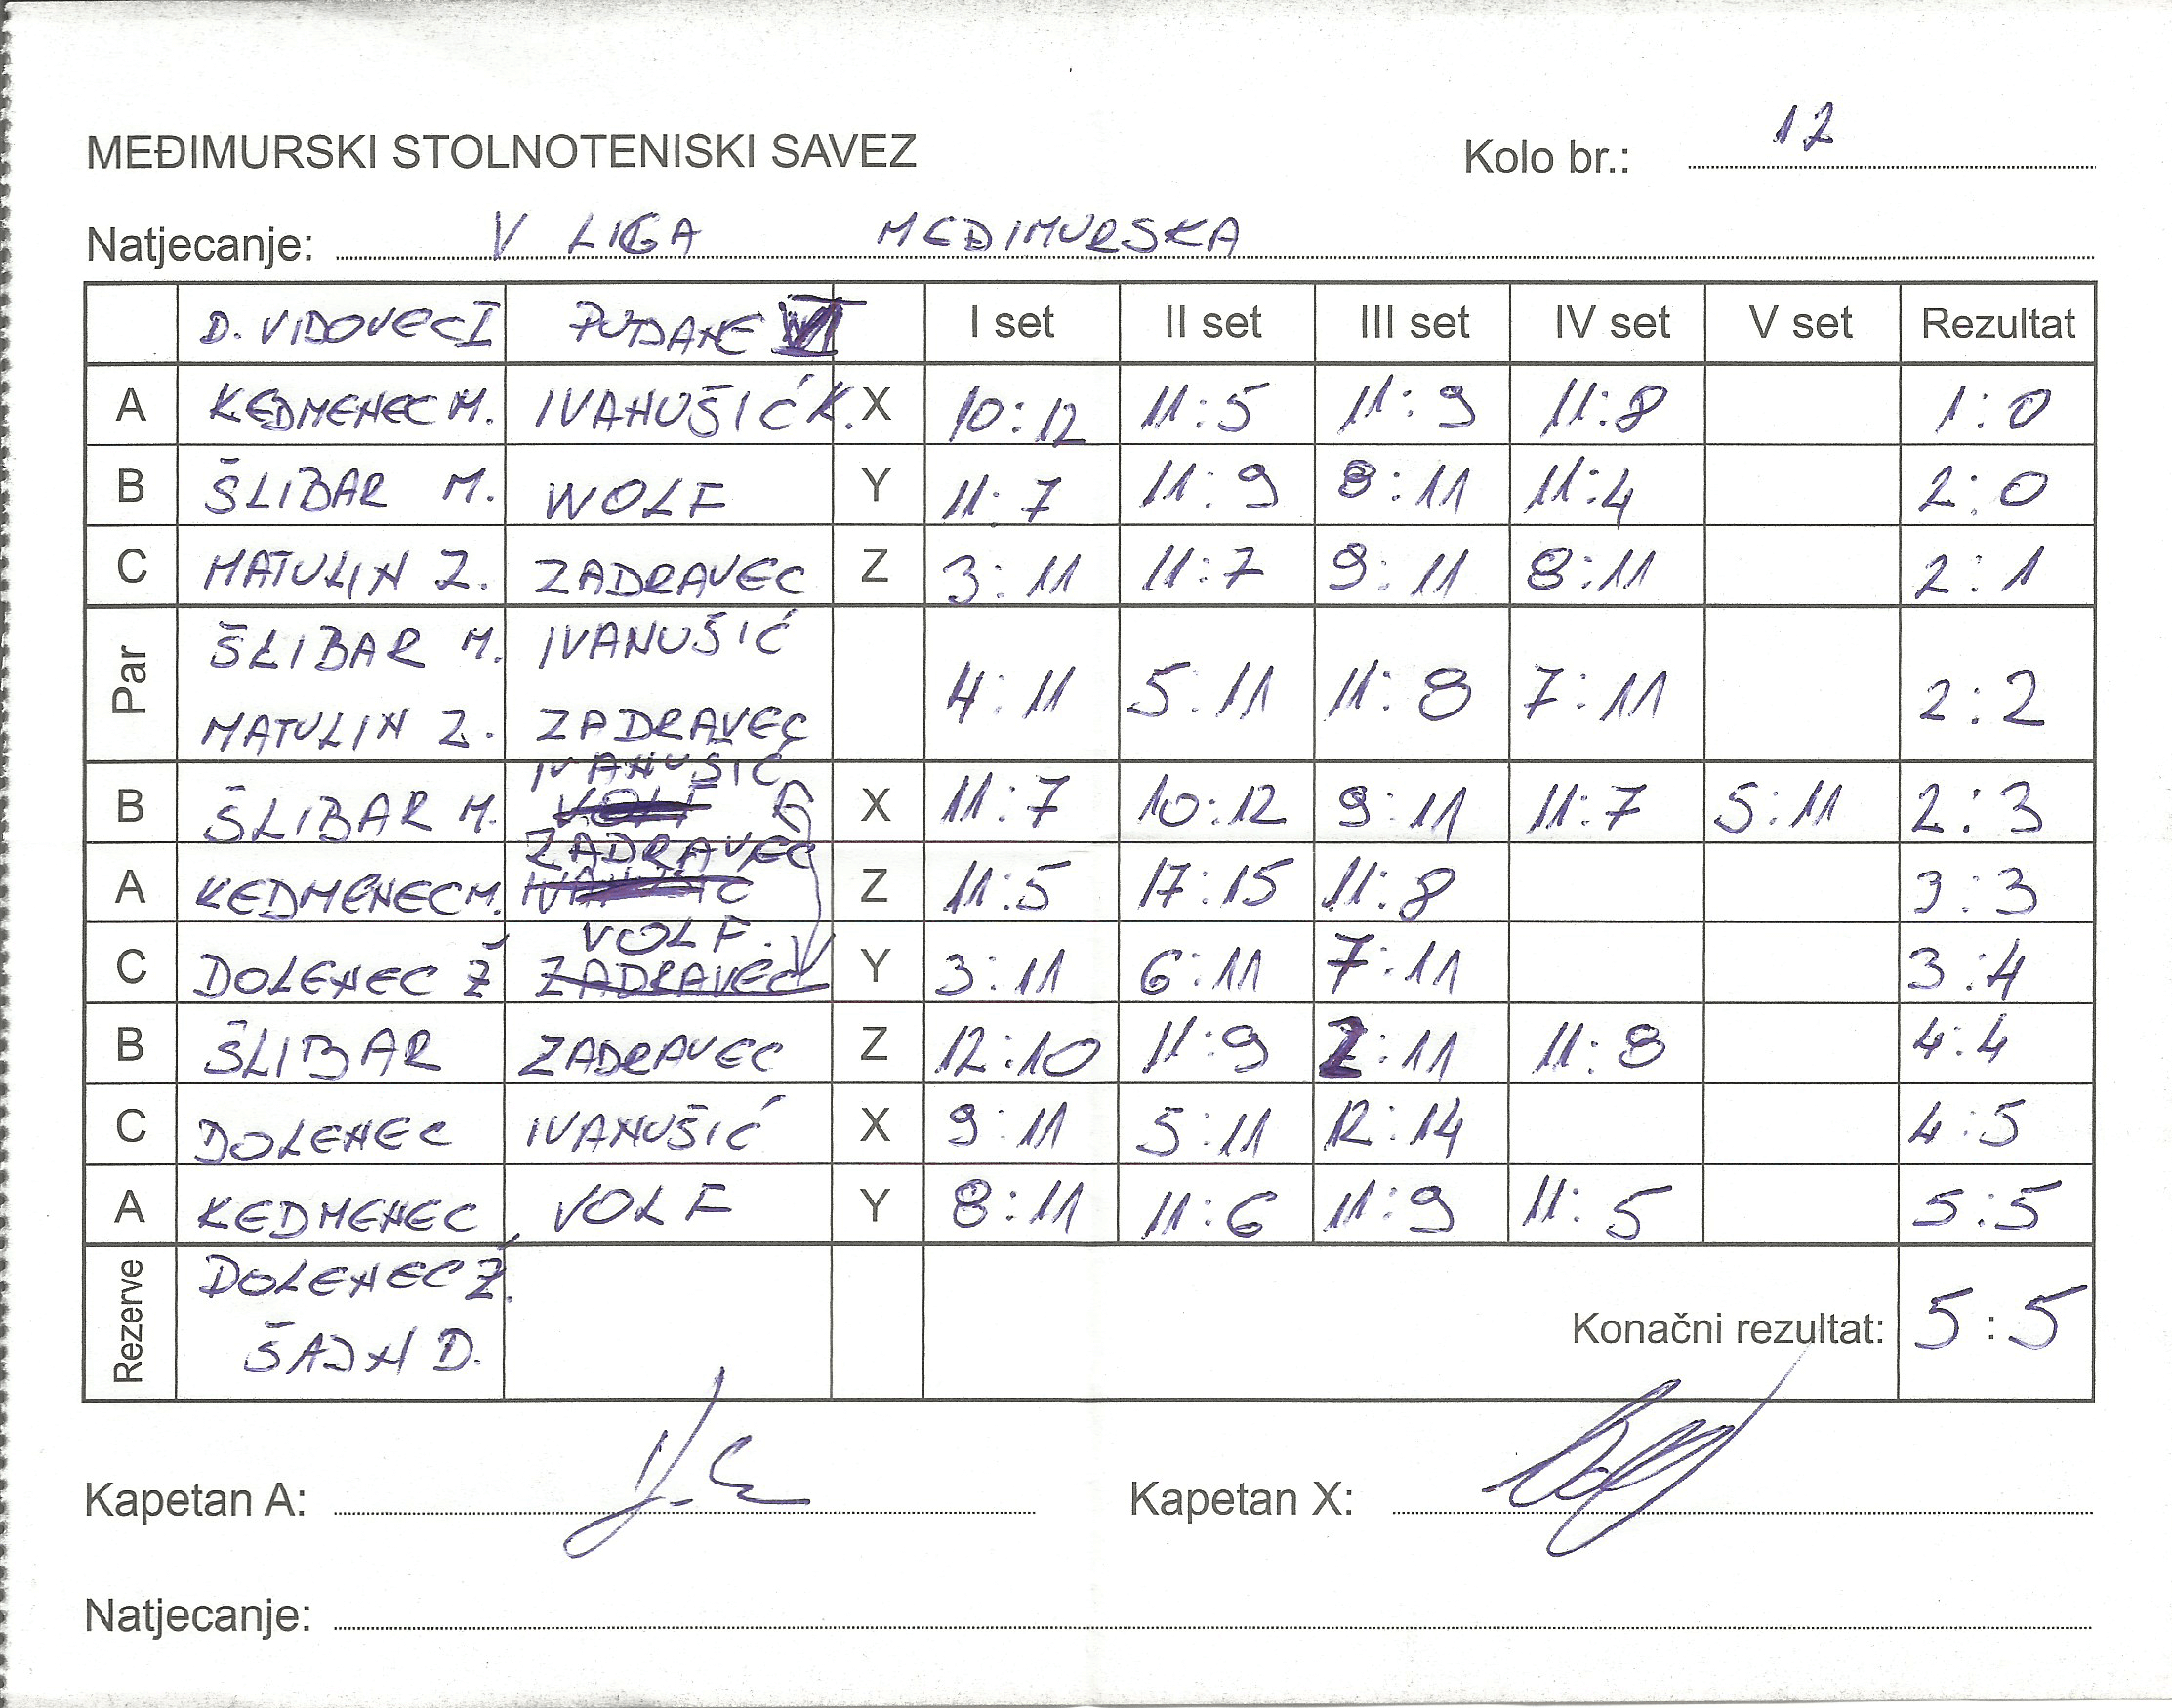 MEĐIMURSKI STOLNOTENISKI SAVEZ Kolo br.: 12
Natjecanje: V LIGA MEĐIMURSKA
D. VIDOVEC I PUŠĆANE I set II set III set IV set V set Rezultat
A KEDMENEC M. IVANUŠIĆ K. X 10:12 11:5 11:9 11:8 1:0
B ŠLIBAR M. WOLF Y 11:7 11:9 8:11 11:4 2:0
C MATULIN Z. ZADRAVEC Z 3:11 11:7 9:11 8:11 2:1
Par ŠLIBAR M. IVANUŠIĆ
MATULIN Z. ZADRAVEC 4:11 5:11 11:8 7:11 2:2
IVANUŠIĆ
B ŠLIBAR M. VOLF X 11:7 10:12 9:11 11:7 5:11 2:3
ZADRAVEC
A KEDMENEC M. IVANUŠIĆ Z 11:5 17:15 11:8 3:3
VOLF.
C DOLENEC Ž ZADRAVEC Y 3:11 6:11 7:11 3:4
B ŠLIBAR ZADRAVEC Z 12:10 11:9 2:11 11:8 4:4
C DOLENEC IVANUŠIĆ X 9:11 5:11 12:14 4:5
A KEDMENEC VOLF Y 8:11 11:6 11:9 11:5 5:5
Rezerve DOLENEC Ž.
ŠAJN D. Konačni rezultat: 5:5
Kapetan A: Kapetan X:
Natjecanje: